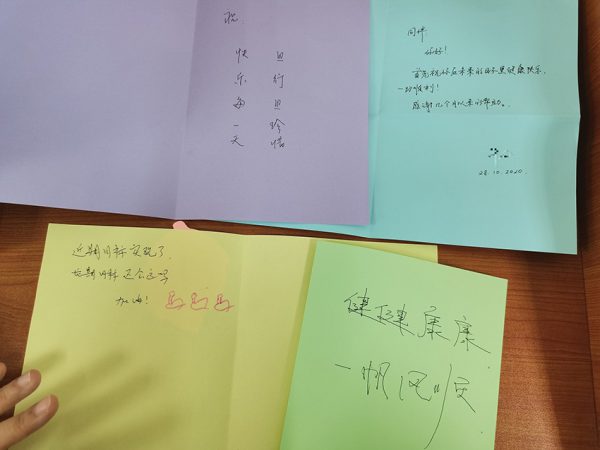 祝:
快乐每一天
且行且珍惜
同伴:
你好!
首先祝你在未来的日子里健康快乐,
一切顺利!
感谢几个月以来的帮助。
28.10.2020.
近期目标实现了,
远期目标还会远吗
加油!
健健康康
一帆风顺